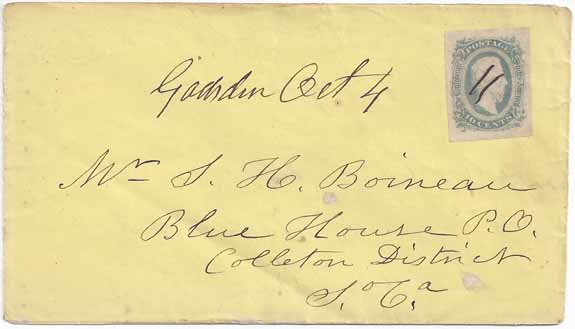 POSTAGE
10 CENTS
Gaarden Oct 4
Mr S. H. Boineau
Blue House P.O.
Colleton District
So Ca